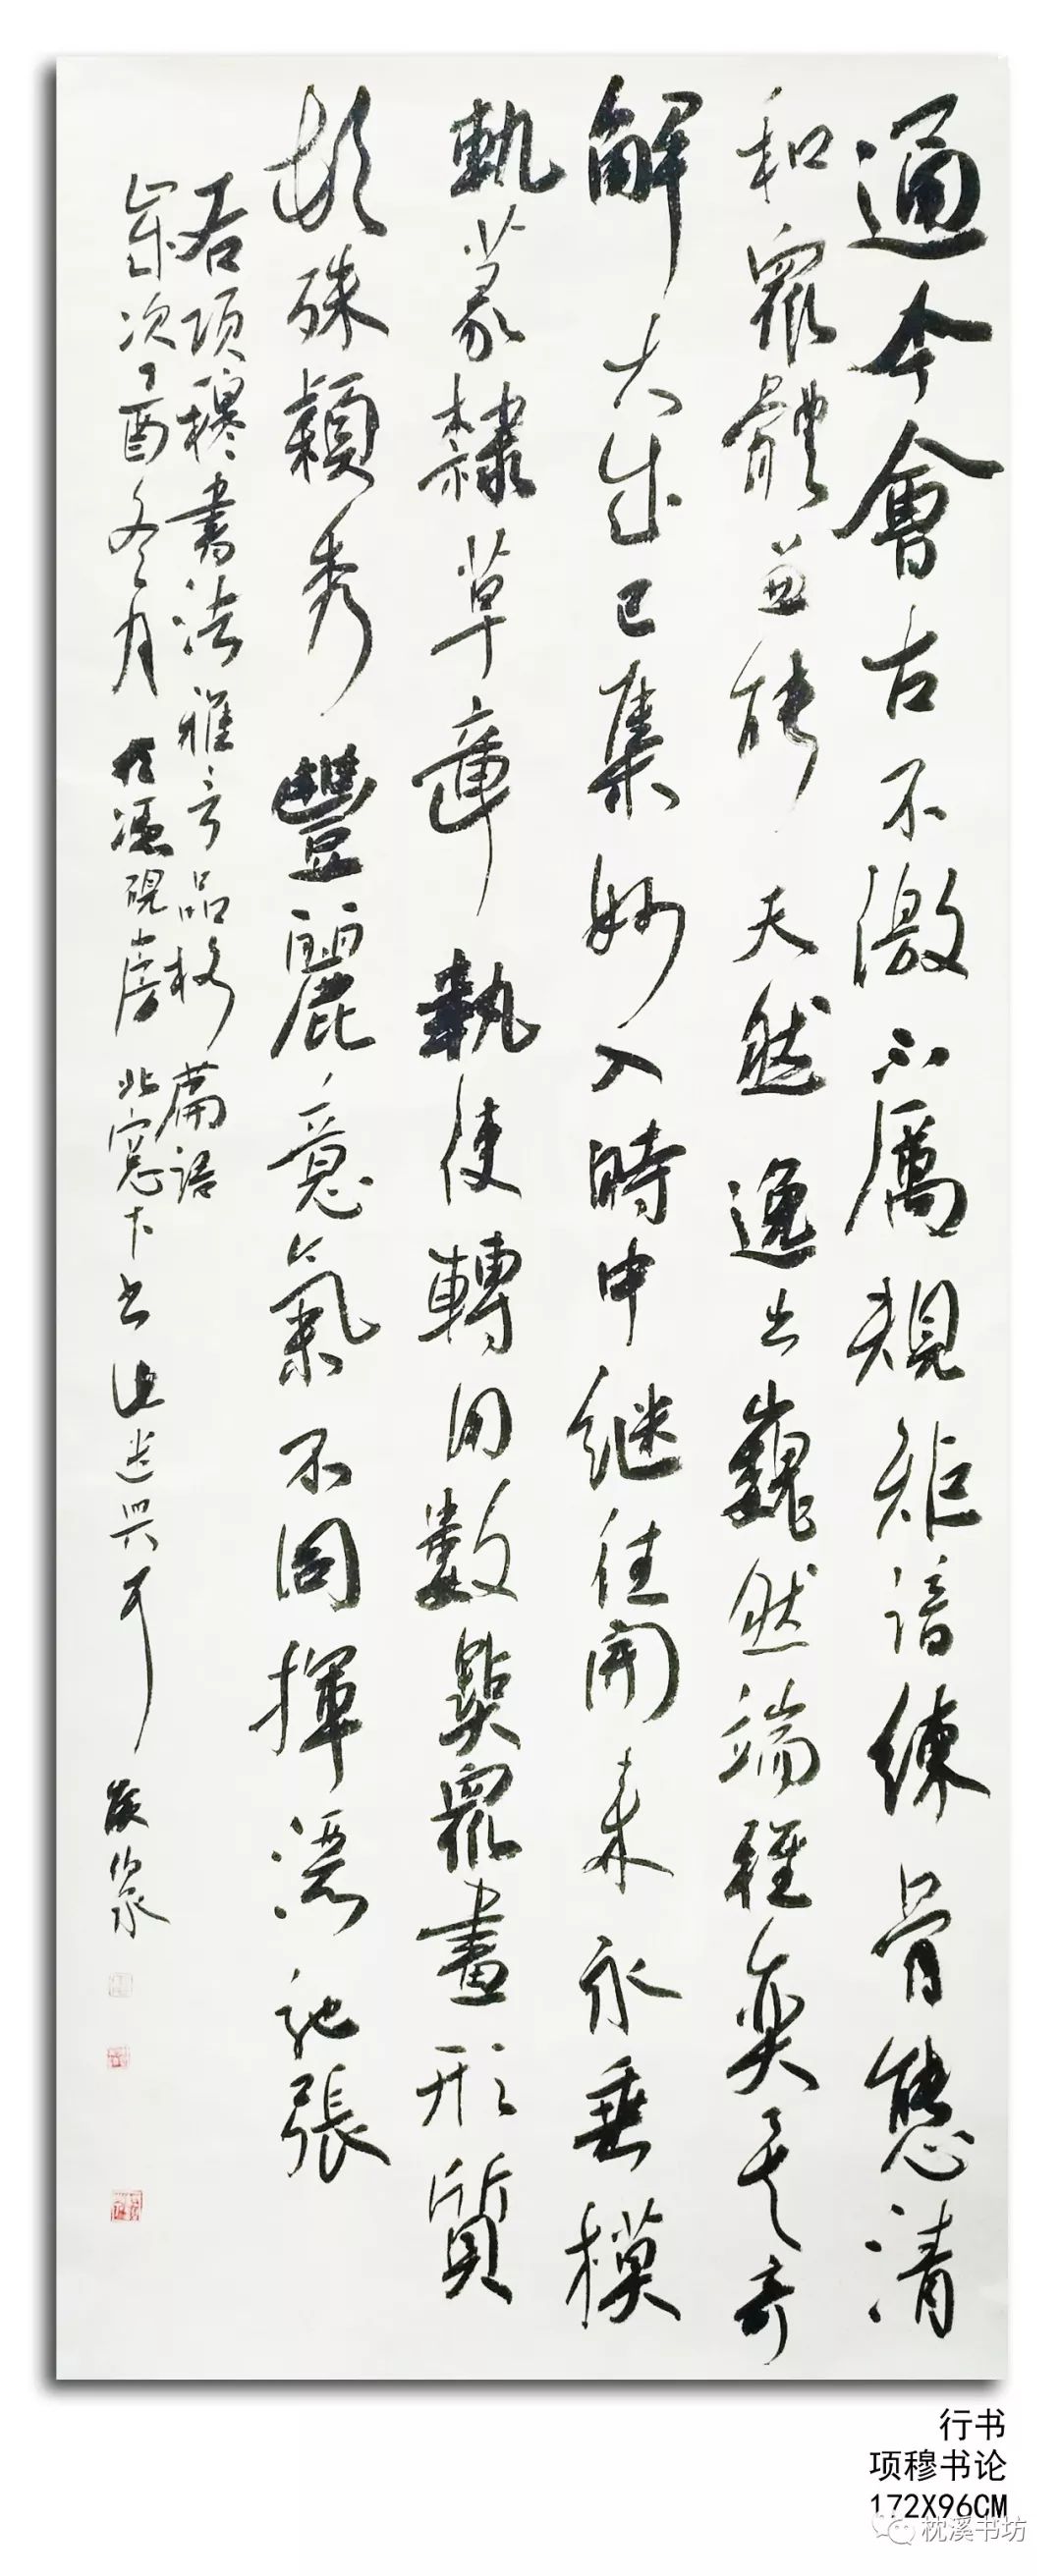 通今會古不激不厲規矩諳練骨態清
和衆體兼能天然逸出巍然端雅奕矣奇
解大成已集妙入時中继往開来永垂模
軌篆隸草章執使轉用數點衆畫形質
頓殊穎秀豐麗意氣不同揮灑弛張
右项穆書法雅言品格篇語
歲次丁酉冬月於硯房北窓下書以遣興耳
行书
项穆书论
172X96CM
枕溪书坊